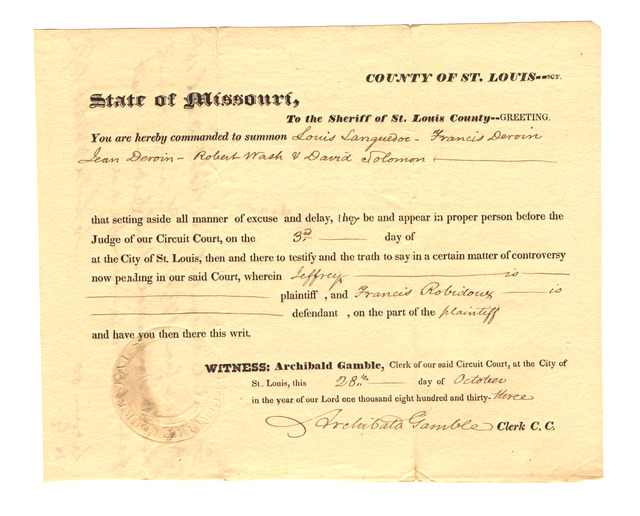 COUNTY OF ST. LOUIS--SCT.
State of Missouri,
To the Sheriff of St. Louis County--GREETING.
You are hereby commanded to summon Louis Languedoc - Francis Deroin
Jean Deroin - Robert Wash & David Solomon
that setting aside all manner of excuse and delay, they be and appear in proper person before the
Judge of our Circuit Court, on the 3rd day of
at the City of St. Louis, then and there to testify and the truth to say in a certain matter of controversy
now pending in our said Court, wherein Jeffrey is
plaintiff , and Francis Robidoux is
defendant , on the part of the plaintiff
and have you then there this writ.
WITNESS: Archibald Gamble, Clerk of our said Circuit Court, at the City of
St. Louis, this 28th day of October
in the year of our Lord one thousand eight hundred and thirty-three
Archibald Gamble Clerk C. C.